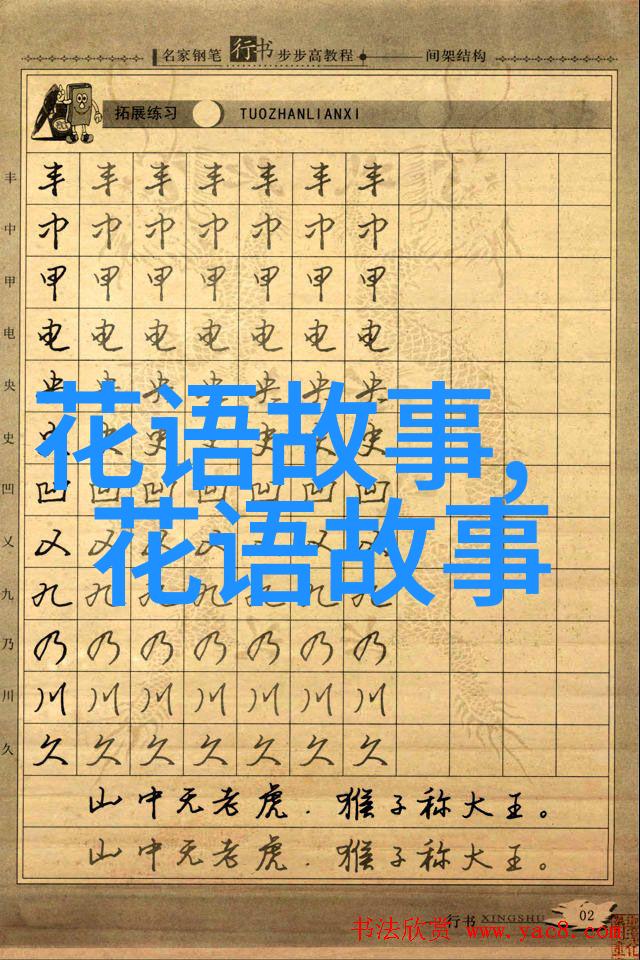 名家钢笔行书步步高教程 间架结构
拓展练习 TUOZHANLIANXI
丰 丰 丰 丰 丰 丰 丰 丰
中 中 中 中 中 中 中 中
甲 甲 甲 甲 甲 甲 甲 甲
电 电 电 电 电 电 电 电
央 央 央 央 央 央 央 央
史 史 史 史 史 史 史 史
花语故事,
凹 凹 凹 凹 凹 凹 凹 凹
乂 乂 乂 乂 乂 乂 乂 乂
花语故事
九 九 九 九 九 九 九 九
乃 乃 乃 乃 乃 乃 乃 乃
川 川 川 川 川 川 川 川
久 久 久 久 久 久 久 久
山中无老虎.猴子称大王。
山中无老虎.猴子称大王。
行书 XINGSHU 02
书法欣赏 www.yac8.com